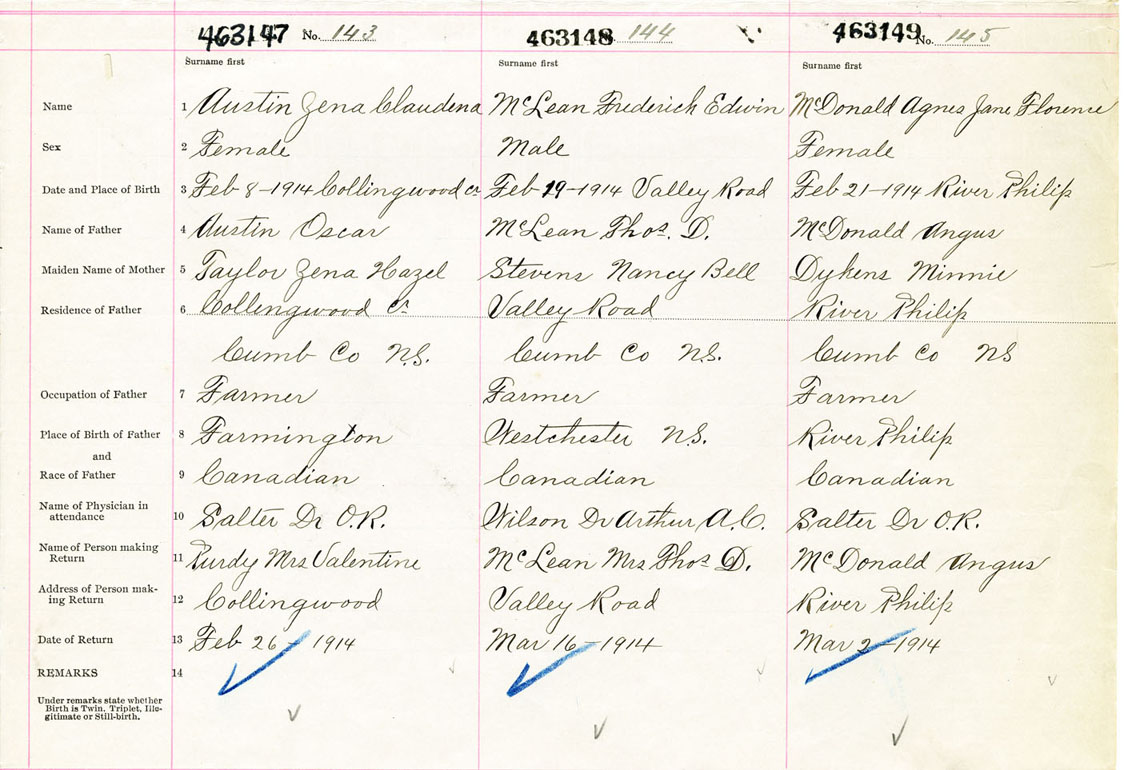 463147 No. 143 463148 144 463149 No. 145
Surname first Surname first Surname first
Name 1 Austin Zena Claudena McLean Frederick Edwin McDonald Agnes Jane Florence
Sex 2 Female Male Female
Date and Place of Birth 3 Feb 8-1914 Collingwood Cr Feb 19-1914 Valley Road Feb 21-1914 River Philip
Name of Father 4 Austin Oscar McLean Thos. D. McDonald Angus
Maiden Name of Mother 5 Taylor Zena Hazel Stevens Nancy Bell Dykens Minnie
Residence of Father 6 Collingwood Cr Valley Road River Philip
Cumb Co N.S. Cumb Co N.S. Cumb Co NS
Occupation of Father 7 Farmer Farmer Farmer
Place of Birth of Father 8 Farmington Westchester N.S. River Philip
and
Race of Father 9 Canadian Canadian Canadian
Name of Physician in
attendance 10 Salter Dr O.R. Wilson Dr Arthur A.C. Salter Dr O.R.
Name of Person making
Return 11 Purdy Mrs Valentine McLean Mrs Thos D. McDonald Angus
Address of Person mak-
ing Return 12 Collingwood Valley Road River Philip
Date of Return 13 Feb 26-1914 Mar 16-1914 Mar 2-1914
REMARKS 14
Under remarks state whether
Birth is Twin, Triplet, Ille-
gitimate or Still-birth.